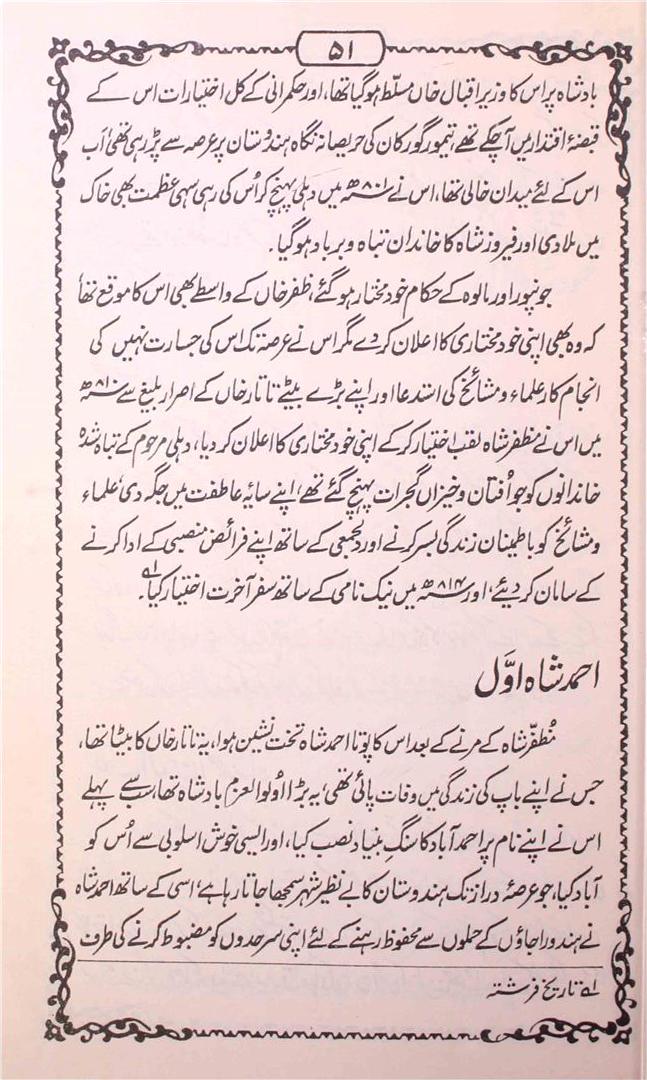 ۵۱
بادشاہ پر اس کا وزیر اقبال خاں مسلّط ہوگیا تھا، اور حکمرانی کے کل اختیارات اس کے
قبضۂ اقتدار میں آچکے تھے، تیمور گورکان کی حریصانہ نگاہ ہندوستان پر عرصہ سے پڑ رہی تھی، اب
اس کے لئے میدان خالی تھا، اس نے ۸۰۱ھ میں دہلی پہنچ کر اُس کی رہی سہی عظمت بھی خاک
میں ملادی اور فیروز شاہ کا خاندان تباہ و برباد ہوگیا۔
جونپور اور مالوہ کے حکام خود مختار ہوگئے، ظفر خاں کے واسطے بھی اس کا موقع تھا
کہ وہ بھی اپنی خود مختاری کا اعلان کردے مگر اس نے عرصہ تک اس کی جسارت نہیں کی
انجام کار علماء و مشائخ کی استدعا اور اپنے بڑے بیٹے تاتار خاں کے اصرار بلیغ سے ۸۱۰ھ
میں اس نے مظفر شاہ لقب اختیار کرکے اپنی خود مختاری کا اعلان کردیا، دہلی مرحوم کے تباہ شدہ
خاندانوں کو جو اُفتان و خیزاں گجرات پہنچ گئے تھے، اپنے سایۂ عاطفت میں جگہ دی، علماء
و مشائخ کو باطمینان زندگی بسر کرنے اور دلجمعی کے ساتھ اپنے فرائض منصبی کے ادا کرنے
کے سامان کر دیئے، اور ۸۱۴ھ میں نیک نامی کے ساتھ سفر آخرت اختیار کیا۔ ؎۱
احمد شاہ اوّل
مُظفّر شاہ کے مرنے کے بعد اس کا پوتا احمد شاہ تخت نشین ہوا، یہ تاتار خاں کا بیٹا تھا،
جس نے اپنے باپ کی زندگی میں وفات پائی تھی، یہ بڑا اُولوالعزم بادشاہ تھا، سب سے پہلے
اس نے اپنے نام پر احمد آباد کا سنگِ بنیاد نصب کیا، اور ایسی خوش اسلوبی سے اُس کو
آباد کیا، جو عرصۂ دراز تک ہندوستان کا بے نظیر شہر سمجھا جاتا رہا ہے، اسی کے ساتھ احمد شاہ
نے ہندو راجاؤں کے حملوں سے محفوظ رہنے کے لئے اپنی سرحدوں کو مضبوط کرنے کی طرف
؎۱ تاریخ فرشتہ